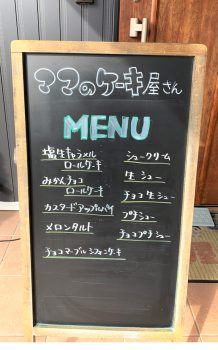 ママのケーキ屋さん
MENU
塩生キャラメル
ロールケーキ
みかんチョコ
ロールケーキ
カスタードアップルパイ
メロンタルト
チョコマーブルシフォンケーキ
シュークリーム
生シュー
チョコ生シュー
プチシュー
チョコプチシュー